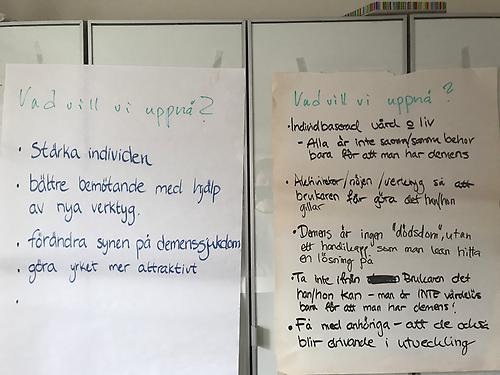 Vad vill vi uppnå?
• Stärka individen
• bättre bemötande med hjälp
av nya verktyg.
• förändra synen på demenssjukdom
• göra yrket mer attraktivt
•
Vad vill vi uppnå?
• Individbaserad vård o liv
- Alla är inte samm/samma behov
bara för att man har demens
• Aktiviteter/nöjen/verktyg så att
brukaren får göra det hon/han
gillar
• Demens är ingen "dödsdom", utan
ett handikapp som man kan hitta
en lösning på
• Ta inte ifrån Brukaren det
han/hon kan - man är INTE värdelös
bara för att man har demens!
• Få med anhöriga - att de också
blir drivande i utveckling